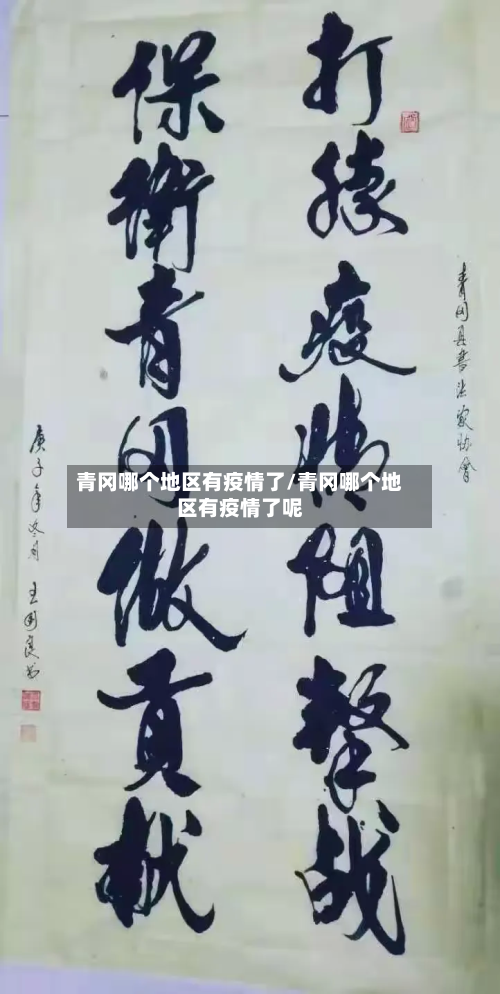 打勝疫情阻擊战
保衛青冈做貢献
青冈县書法家协會
庚子年冬月 王國良书
青冈哪个地区有疫情了/青冈哪个地
区有疫情了呢